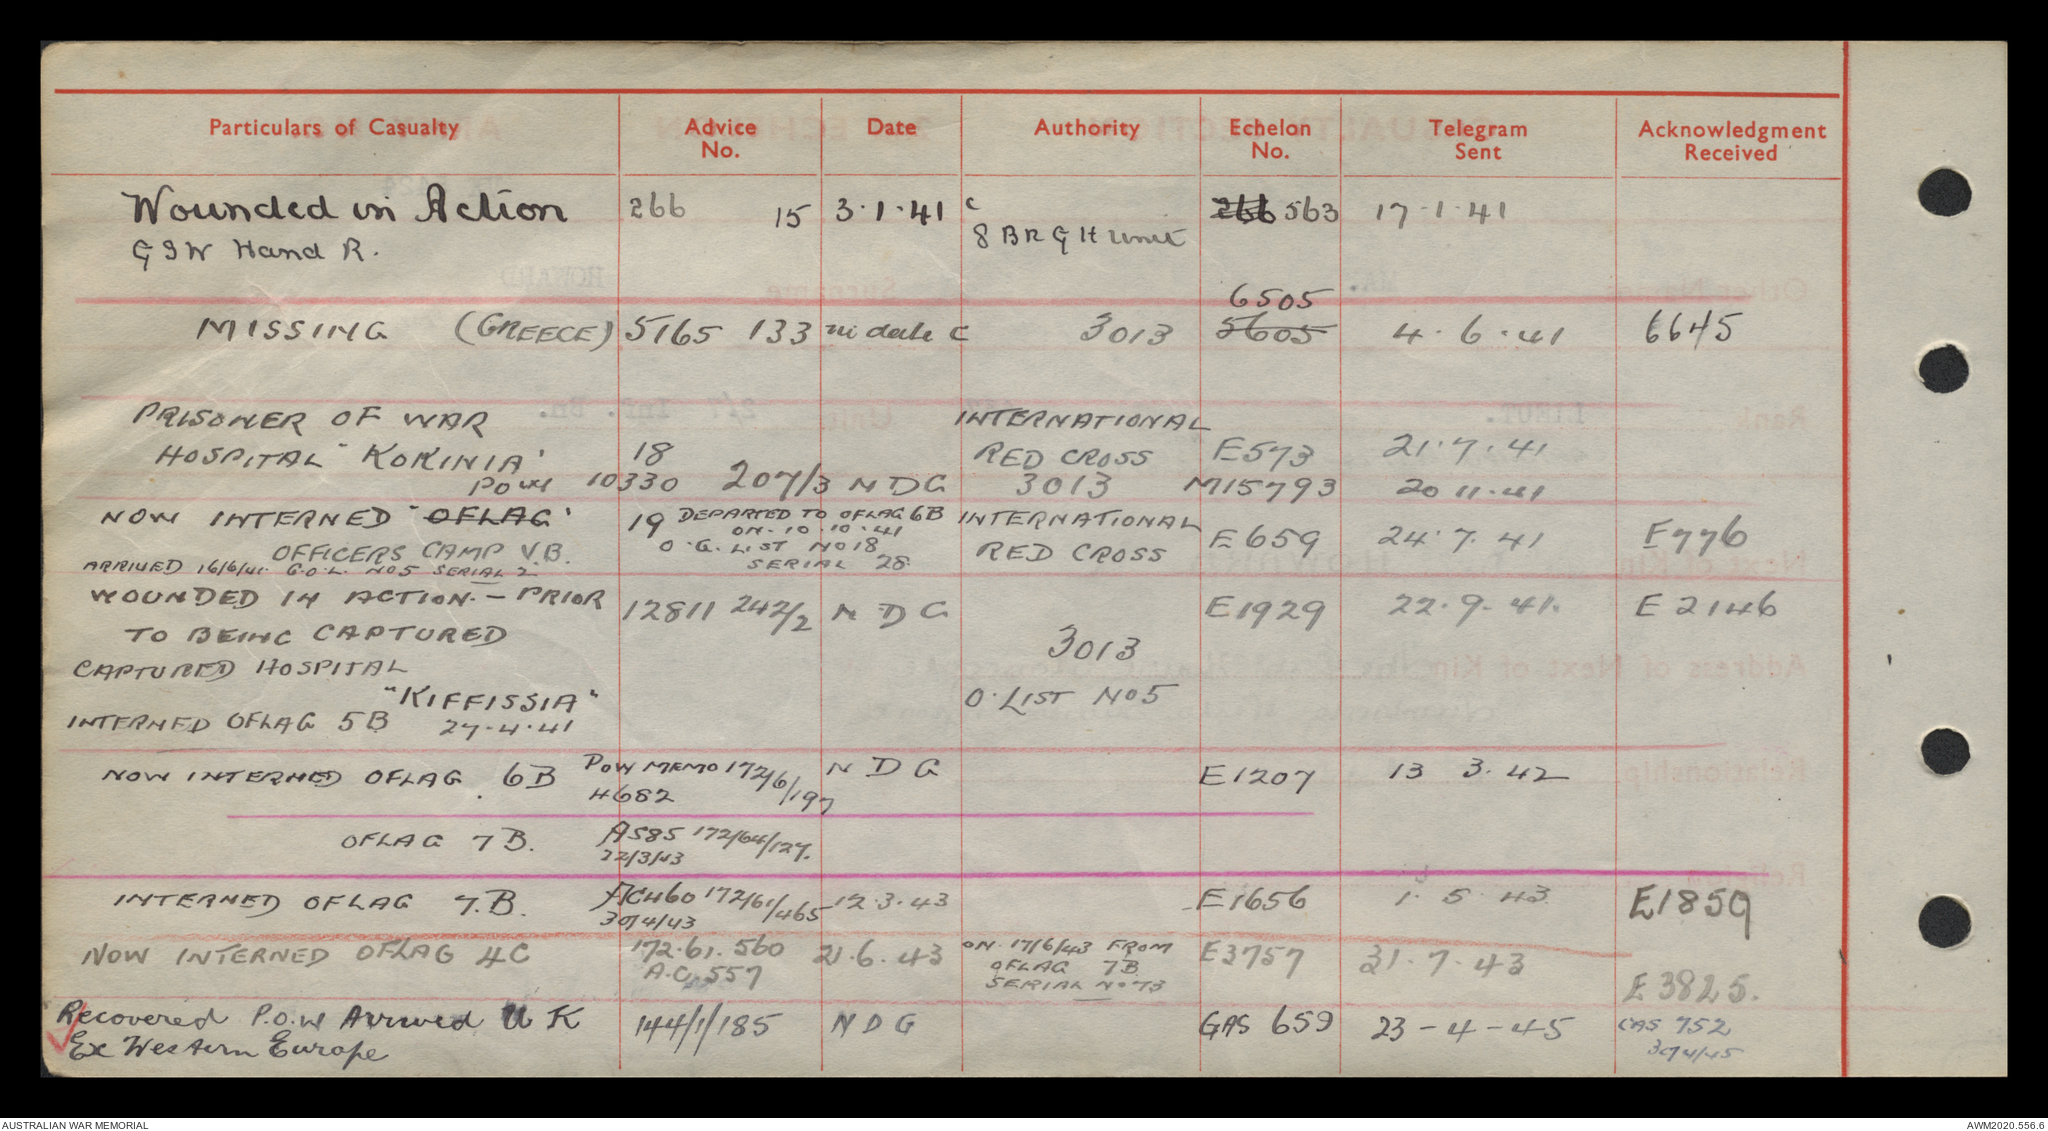 Particulars of Casualty Advice No. Date Authority Echelon No. Telegram Sent Acknowledgment Received
Wounded in Action 266 15 3.1.41 C 266 563 17.1.41
GSW Hand R. 8 BR G H unit
6505
MISSING (GREECE) 5165 133 no date C 3013 5605 4.6.41 6645
PRISONER OF WAR INTERNATIONAL
HOSPITAL "KOKINIA" 18 RED CROSS E573 21.7.41
POW 10330 207/3 NDG 3013 M15793 20 11.41
NOW INTERNED "OFLAG" 19 DEPARTED TO OFLAG 6B INTERNATIONAL E659 24.7.41 E776
ON. 10.10.41
OFFICERS CAMP V.B. O.G. LIST NO 18 RED CROSS
ARRIVED 16/6/41. G.O.L. NO5 SERIAL 2 SERIAL 28
WOUNDED IN ACTION. – PRIOR 12811 242/2 NDG E1929 22.9.41. E2146
TO BEING CAPTURED 3013
CAPTURED HOSPITAL
"KIFFISSIA" O. LIST NO5
INTERNED OFLAG 5B 27.4.41
NOW INTERNED OFLAG 6B POW MEMO 172/6/197 NDG E1207 13 3.42
4682
OFLAG 7B. AS85 172/64/127.
22/3/43
INTERNED OFLAG 7.B. AC460 172/61/465 12.3.43 E1656 1.5.43 E1859
30/4/43
NOW INTERNED OFLAG 4C 172.61.560 21.6.43 ON 17/6/43 FROM E3757 31.7.43
A.C. 557 OFLAG 7B
SERIAL NO 73 E3825.
Recovered P.O.W Arrived U K 144/1/185 NDG GAS 659 23-4-45 CAS 752
Ex Western Europe 30/4/45
AUSTRALIAN WAR MEMORIAL AWM2020.556.6